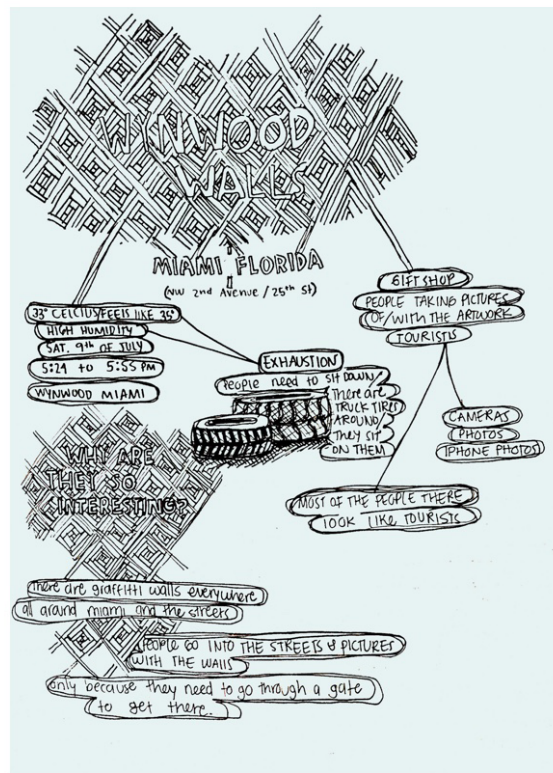 WYNWOOD
WALLS
MIAMI FLORIDA
(NW 2nd Avenue / 25th St)
33° CELCIUS/FEELS LIKE 35°
HIGH HUMIDITY
SAT. 9th OF JULY
5:24 to 5:55 PM
WYNWOOD MIAMI
GIFT SHOP
PEOPLE TAKING PICTURES
OF/WITH THE ARTWORK
TOURISTS
EXHAUSTION
People NEED TO SIT DOWN/
There are
TRUCK TIRES
AROUND/
THEY SIT
ON THEM
CAMERAS
PHOTOS
IPHONE PHOTOS
MOST OF THE PEOPLE THERE
LOOK LIKE TOURISTS
WHY ARE
THEY SO
INTERESTING?
There are graffitti walls everywhere
all around miami and the streets
PEOPLE GO INTO THE STREETS & PICTURES
WITH THE WALLS
only because they need to go through a gate
to get there.